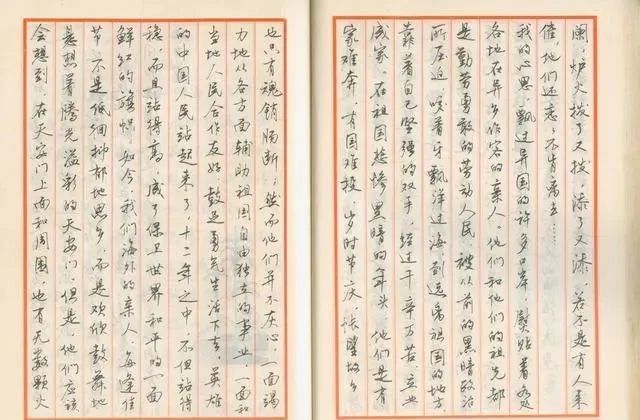 阑，炉火拨了又拨，添了又添，若不是有人来
催，他们还恋恋不肯离去……
我的心思，飘过异国的许多口岸，熨贴着各处
各地在异乡作客的亲人。他们和他们的祖先都
是勤劳勇敢的劳动人民，被从前的黑暗政治
所压迫，咬着牙飘洋过海到远离祖国的地方，
靠着自己坚强的双手，经过千辛万苦，立业
成家，在祖国愁惨黑暗的年头，他们是有
家难奔，有国难投，岁时节庆，怅望故乡
也只有魂销肠断；然而他们并不灰心，一面竭
力地从各方面辅助祖国自由独立的事业，一面和
当地人民合作友好，鼓足勇气生活下去。英雄
的中国人民站起来了，十二年之中，不但站得
稳，而且站得高，成了保卫世界和平的一面
鲜红的旗帜。如今，我们海外的亲人，每逢佳
节，不是低徊抑郁地思乡，而是欢欣鼓舞地
悬想着腾光溢彩的天安门。但是，他们应该
会想到，在天安门上面和周围，也有无数颗火